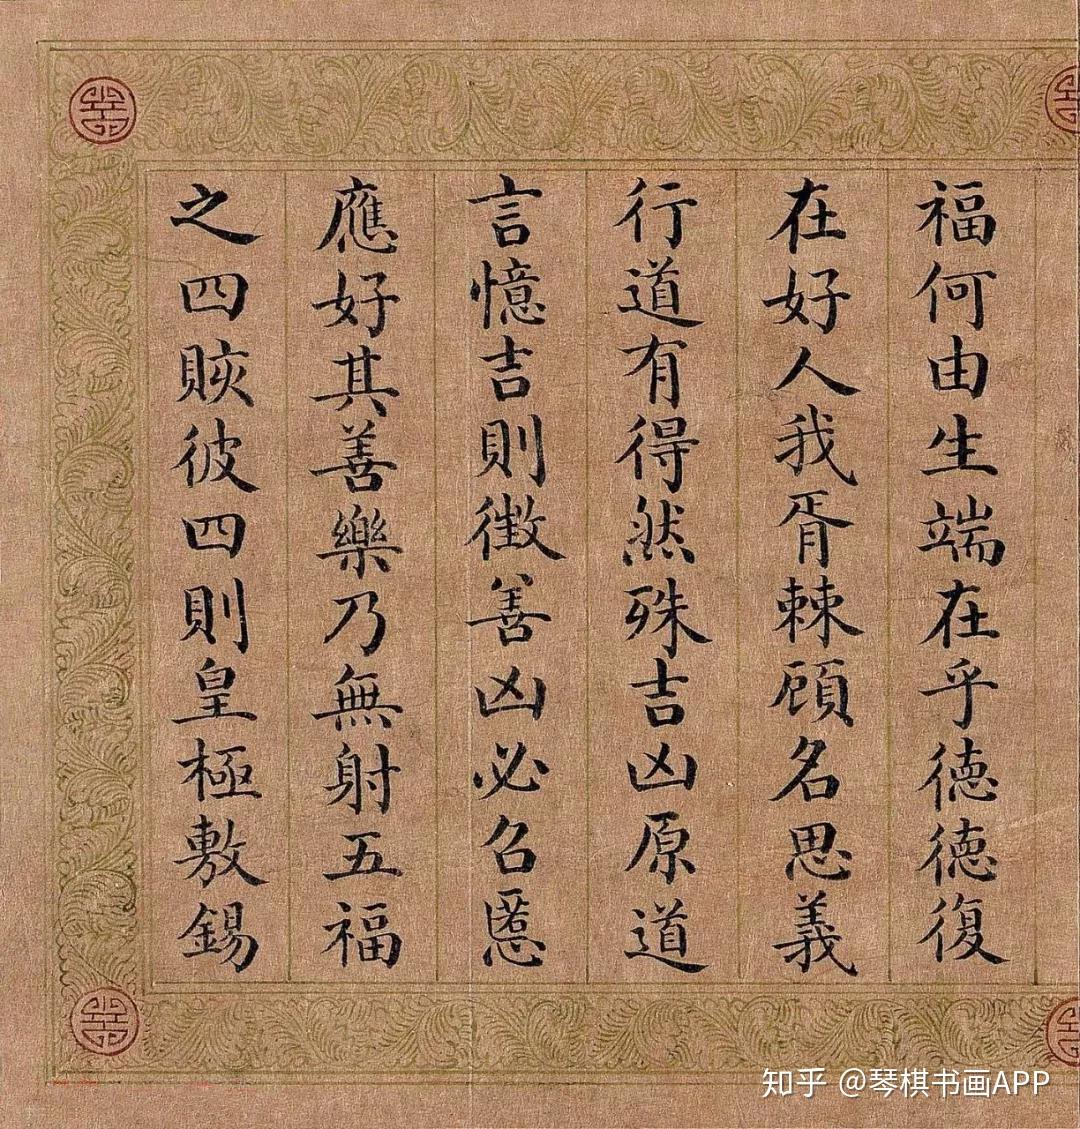 福何由生端在乎德德復
在好人我胥棘顧名思義
行道有得然殊吉凶原道
言憶吉則徵善凶必召慝
應好其善樂乃無射五福
之四賅彼四則皇極敷錫
知乎 @琴棋书画APP